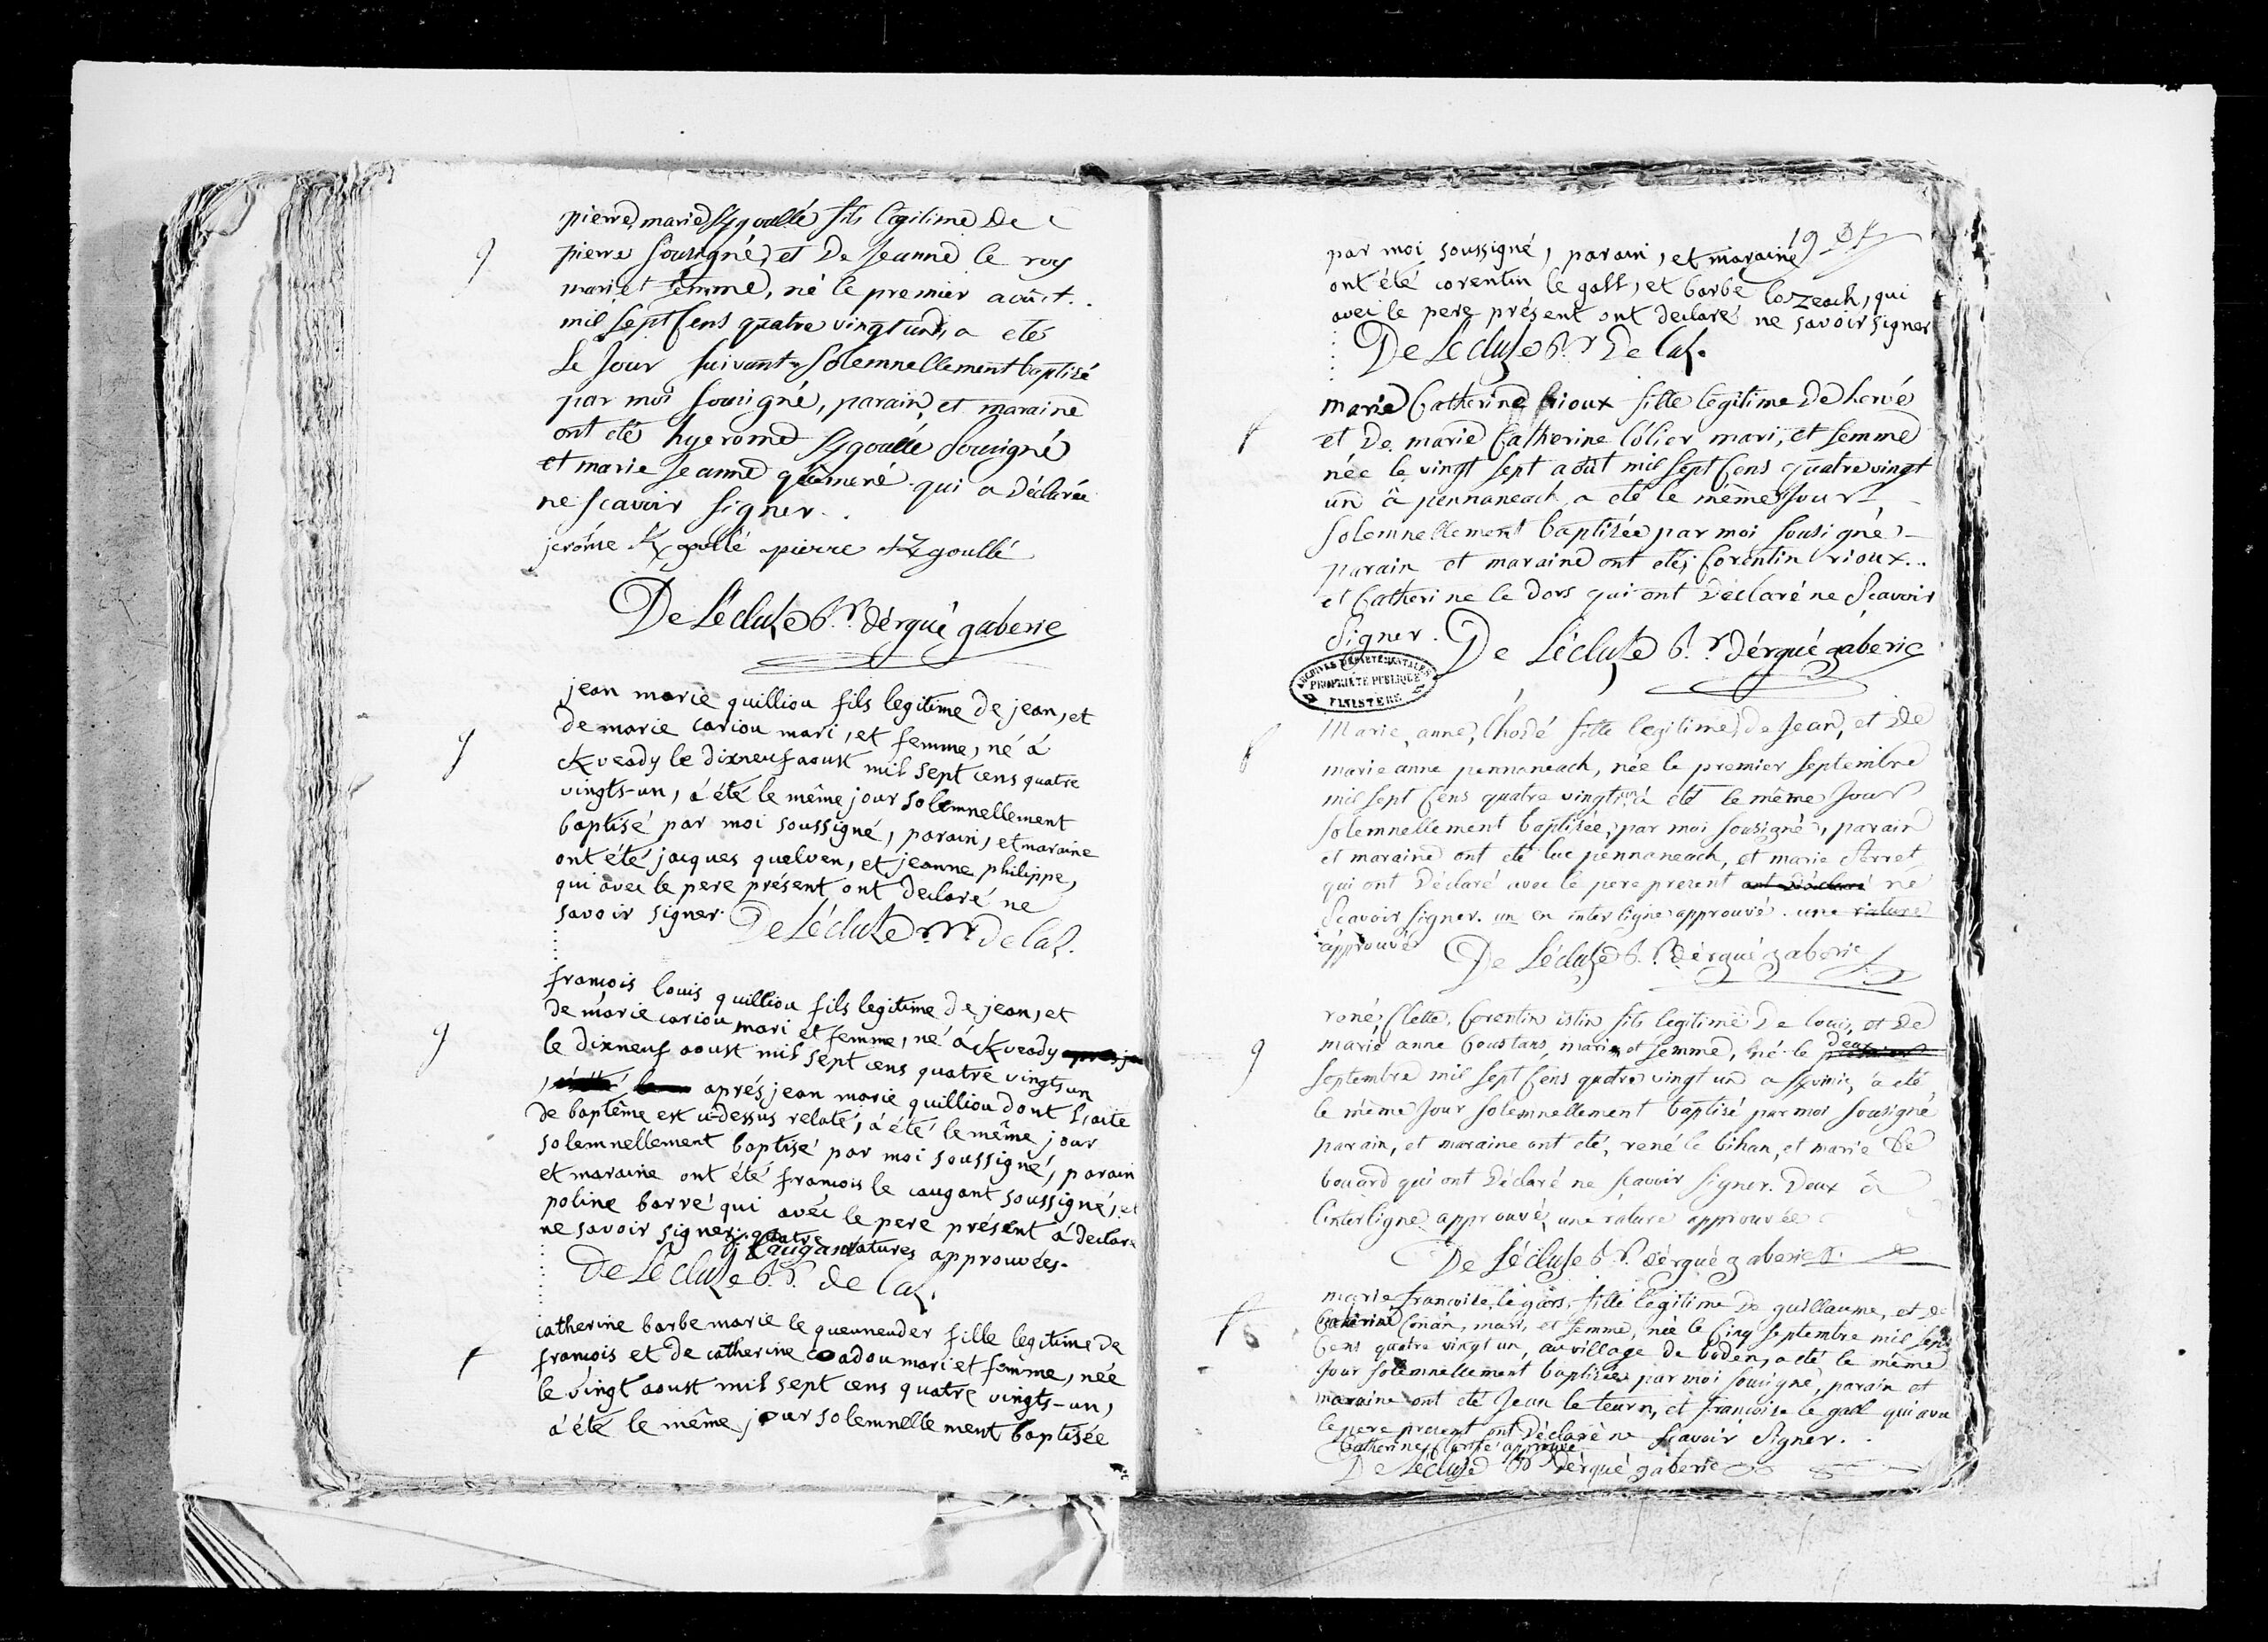 pierre marie Kgoullé fils legitime De
g
pierre Sousigné, et De Jeanne le roy
mari et femme, né le premier août
mil sept Cens quatre vingt un, a eté
le Jour suivant Solemnellement baptisé
par moi sousigné, parain, et maraine
ont eté hyerome Kgoullé Sousigné
et marie Jeanne quémeré qui a déclarée
ne scavoir signer.
jerôme Kgoullé pierre Kgoullé
De Lécluse Rr. dérgué gaberic
jean marie quilliou fils legitime de jean, et
g
de marie cariou mari, et femme, né á
Kveady le dixneuf aoust mil sept cens quatre
vingts-un, á été le même jour solemnellement
baptisé par moi soussigné, parain, et maraine
ont été jacques quelven, et jeanne philippe,
qui avec le pere présent ont declaré ne
savoir signer. De Lécluse Rr. de laz.
francois louis quilliou fils legitime de jean, et
g
de marie cariou mari et femme, né á Kveady
le dixneuf aoust mil sept cens quatre vingts un
aprés jean marie quilliou dont l'acte
de baptême est ci-dessus relaté, á été le même jour
solemnellement baptisé par moi soussigné, parain
et maraine ont été francois le caugant soussigné, et
poline barré qui avec le pere présent á declaré
ne savoir signer. quatre ratures approuvées.
f. le Caugant
De Lécluse Rr. de laz.
catherine barbe marie le queuneuder fille legitime de
f
francois et de catherine coadou mari et femme, née
le vingt aoust mil sept cens quatre vingts-un,
á été le même jour solemnellement baptisée
19
par moi soussigné, parain, et maraine
ont été corentin le gall, et barbe lozeach, qui
avec le pere présent ont declaré ne savoir signer
De Lécluse Rr De laz.
marie Catherine Rioux fille légitime De hervé
f
et De marie Catherine Colier mari, et femme
née le vingt sept août mil sept Cens quatre vingt
un à pennaneach a eté le même Jour
solemnellement baptisée par moi sousigné
parain et maraine ont eté, Corentin rioux..
et Catherine le Dors qui ont Déclaré ne Scavoir
Signer. De Lécluse Rr dérgué gaberic
ARCHIVES DÉPARTEMENTALES
PROPRIÉTÉ PUBLIQUE
FINISTÈRE
Marie, anne, Lhoré fille legitime de Jean, et De
f
marie anne pennaneach, née le premier septembre
mil sept Cens quatre vingt un á eté le même Jour
solemnellement baptisée, par moi sousigné, parain
et maraine ont eté luc pennaneach, et marie Perret
qui ont Déclaré avec le pere present ont Déclaré ne
Scavoir signer. un en interligne approuvé. une rature
approuvée De Lécluse Rr. dérgué gaberic
rené, Corentin istin fils legitime De louis, et De
g
marie anne Coustans, mari et femme, né le premier deux
septembre mil sept Cens quatre vingt un a á eté
le même Jour solemnellement baptisé par moi sousigné
parain, et maraine ont eté, rené le bihan, et marie le
bouard qui ont Déclaré ne scavoir signer. Deux á
l'interligne approuvé, une rature approuvée
De Lécluse Rr. dérgué gaberic
marie francoise, le gars, fille legitime De guillaume, et de
f
Catherine Conan, mari, et femme, née le Cinq septembre mil sept
Cens quatre vingt un, au village de boden, a eté le même
Jour solemnellement baptisée par moi sousigné, parain et
maraine ont eté Jean le teurn, et francoise le gall qui avec
le pere present ont Déclaré ne scavoir signer.
Catherine approuvé
De Lécluse Rr dérgué gaberic